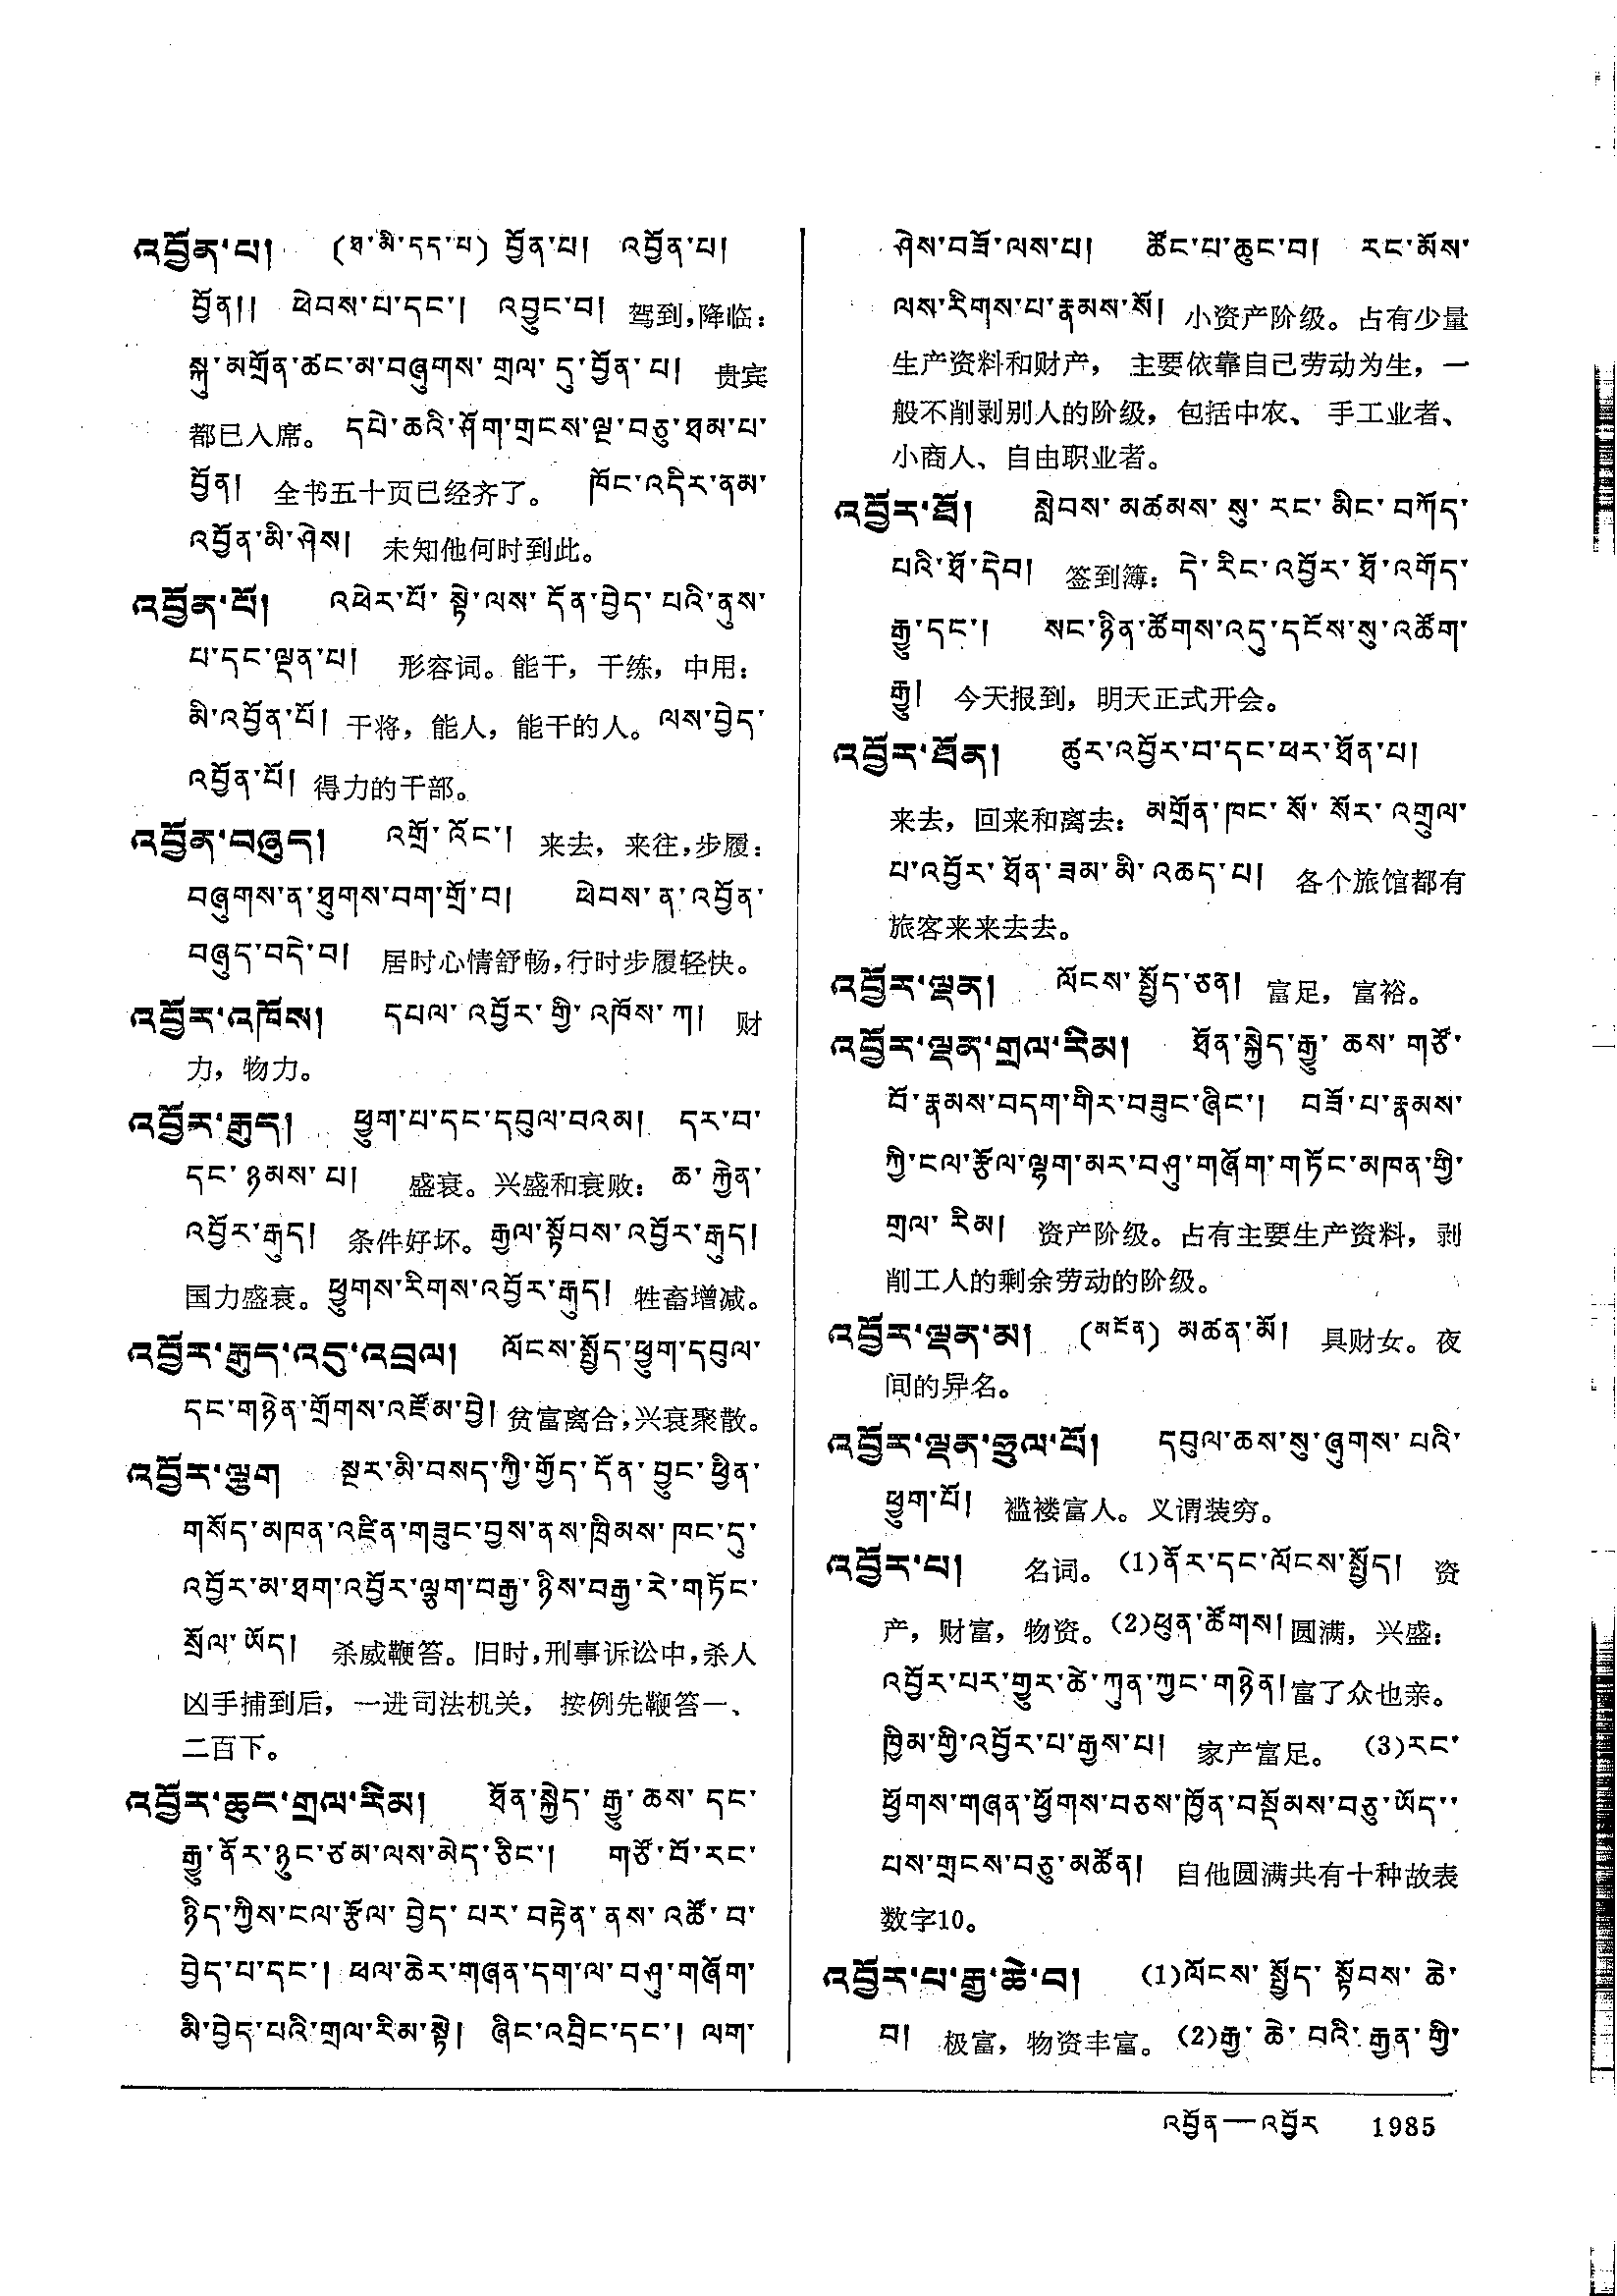 འབྱོན་པ། (ཐ་མི་དད་པ) བྱོན་པ། འབྱོན་པ།
བྱོན།། ཕེབས་པ་དང་། འབྱུང་བ། 驾到,降临：
སྐུ་མགྲོན་ཚང་མ་བཞུགས་གྲལ་དུ་བྱོན་པ། 贵宾
都已入席。 དཔེ་ཆའི་ཤོག་གྲངས་ལྔ་བཅུ་ཐམ་པ་
བྱོན། 全书五十页已经齐了。 ཁོང་འདིར་ནམ་
འབྱོན་མི་ཤེས། 未知他何时到此。
འབྱོན་པོ། འཕེར་པོ་སྟེ་ལས་དོན་བྱེད་པའི་ནུས་
པ་དང་ལྡན་པ། 形容词。能干，干练，中用：
མི་འབྱོན་པོ། 干将，能人，能干的人。ལས་བྱེད་
འབྱོན་པོ། 得力的干部。
འབྱོན་བཞུད། འགྲོ་འོང་། 来去，来往,步履：
བཞུགས་ན་ཐུགས་བག་གྲོ་བ། ཕེབས་ན་འབྱོན་
བཞུད་བདེ་བ། 居时心情舒畅,行时步履轻快。
འབྱོར་འཁོས། དཔལ་འབྱོར་གྱི་འཁོས་ཀ། 财
力，物力。
འབྱོར་རྒུད། ཕྱུག་པ་དང་དབུལ་བའམ། དར་བ་
དང་ཉམས་པ། 盛衰。兴盛和衰败： ཆ་རྐྱེན་
འབྱོར་རྒུད། 条件好坏。རྒྱལ་སྟོབས་འབྱོར་རྒུད།
国力盛衰。ཕྱུགས་རིགས་འབྱོར་རྒུད། 牲畜增减。
འབྱོར་རྒུད་འདུ་འབྲལ། ལོངས་སྤྱོད་ཕྱུག་དབུལ་
དང་གཉེན་གྲོགས་འཛོམ་བྱེ། 贫富离合,兴衰聚散。
འབྱོར་ལྕུག སྔར་མི་བསད་ཀྱི་གྱོད་དོན་བྱུང་ཕྱིན་
གསོད་མཁན་འཛིན་གཟུང་བྱས་ནས་ཁྲིམས་ཁང་དུ་
འབྱོར་མ་ཐག་འབྱོར་ལྕུག་བརྒྱ་ཉིས་བརྒྱ་རེ་གཏོང་
སྲོལ་ཡོད། 杀威鞭笞。旧时,刑事诉讼中,杀人
凶手捕到后，一进司法机关， 按例先鞭笞一、
二百下。
འབྱོར་ཆུང་གྲལ་རིམ། ཐོན་སྐྱེད་རྒྱུ་ཆས་དང་
རྒྱུ་ནོར་ཉུང་ཙམ་ལས་མེད་ཅིང་། གཙོ་བོ་རང་
ཉིད་ཀྱིས་ངལ་རྩོལ་བྱེད་པར་བརྟེན་ནས་འཚོ་བ་
བྱེད་པ་དང་། ཕལ་ཆེར་གཞན་དག་ལ་བཤུ་གཞོག་
མི་བྱེད་པའི་གྲལ་རིམ་སྟེ། ཞིང་འབྲིང་དང་། ལག་
ཤེས་བཟོ་ལས་པ། ཚོང་པ་ཆུང་བ། རང་མོས་
ལས་རིགས་པ་རྣམས་སོ། 小资产阶级。占有少量
生产资料和财产， 主要依靠自己劳动为生，一
般不削剥别人的阶级，包括中农、 手工业者、
小商人、自由职业者。
འབྱོར་ཐོ། སླེབས་མཚམས་སུ་རང་མིང་བཀོད་
པའི་ཐོ་དེབ། 签到簿：དེ་རིང་འབྱོར་ཐོ་འགོད་
རྒྱུ་དང་། སང་ཉིན་ཚོགས་འདུ་དངོས་སུ་འཚོག་
རྒྱུ། 今天报到，明天正式开会。
འབྱོར་ཐོན། ཚུར་འབྱོར་བ་དང་ཕར་ཐོན་པ།
来去，回来和离去：མགྲོན་ཁང་སོ་སོར་འགྲུལ་
པ་འབྱོར་ཐོན་ཟམ་མི་འཆད་པ། 各个旅馆都有
旅客来来去去。
འབྱོར་ལྡན། ལོངས་སྤྱོད་ཅན། 富足，富裕。
འབྱོར་ལྡན་གྲལ་རིམ། ཐོན་སྐྱེད་རྒྱུ་ཆས་གཙོ་
བོ་རྣམས་བདག་གིར་བཟུང་ཞིང་། བཟོ་པ་རྣམས་
ཀྱི་ངལ་རྩོལ་ལྷག་མར་བཤུ་གཞོག་གཏོང་མཁན་གྱི་
གྲལ་རིམ། 资产阶级。占有主要生产资料，剥
削工人的剩余劳动的阶级。
འབྱོར་ལྡན་མ། (མངོན) མཚན་མོ། 具财女。夜
间的异名。
འབྱོར་ལྡན་ཧྲུལ་པོ། དབུལ་ཆས་སུ་ཞུགས་པའི་
ཕྱུག་པོ། 褴褛富人。义谓装穷。
འབྱོར་པ། 名词。(1)ནོར་དང་ལོངས་སྤྱོད། 资
产，财富，物资。(2)ཕུན་ཚོགས། 圆满，兴盛：
འབྱོར་པར་གྱུར་ཚེ་ཀུན་ཀྱང་གཉེན། 富了众也亲。
ཁྱིམ་གྱི་འབྱོར་པ་རྒྱས་པ། 家产富足。 (3)རང་
ཕྱོགས་གཞན་ཕྱོགས་བཅས་ཁྱོན་བསྡོམས་བཅུ་ཡོད་་
པས་གྲངས་བཅུ་མཚོན། 自他圆满共有十种故表
数字10。
འབྱོར་པ་རྒྱ་ཆེ་བ། (1)ལོངས་སྤྱོད་སྟོབས་ཆེ་
བ། 极富，物资丰富。(2)རྒྱ་ཆེ་བའི་རྒྱན་གྱི་
འབྱོན—འབྱོར 1985